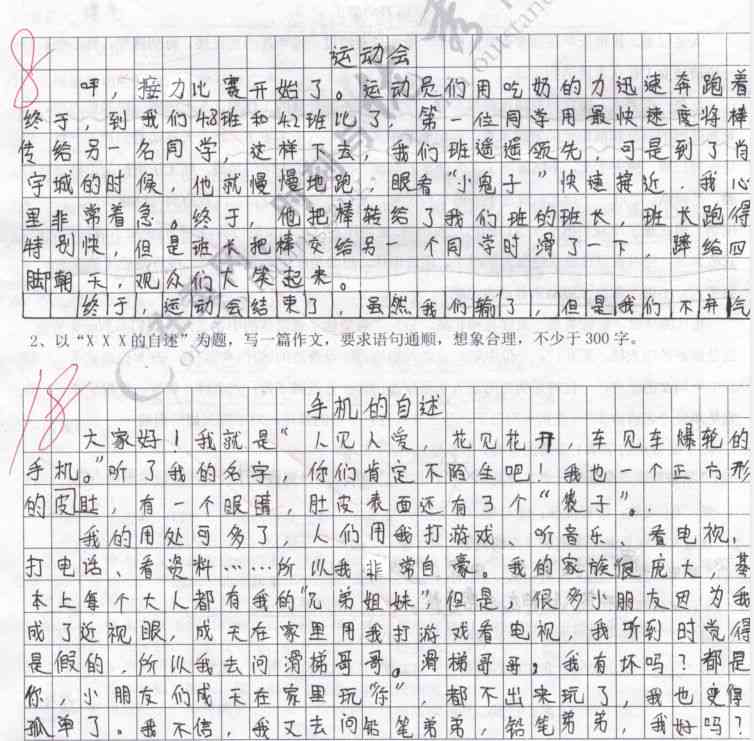 8
运动会
呯，接力比赛开始了。运动员们用吃奶的力迅速奔跑着
终于，到我们4.3班和4.2班比了，第一位同学用最快速度将棒
传给另一名同学，这样下去，我们班遥遥领先，可是到了肖
宇城的时候，他就慢慢地跑，眼看“小鬼子”快速接近，我心
里非常着急。终于，他把棒转给了我们班的班长，班长跑得
特别快，但是班长把棒交给另一个同学时滑了一下，蹄给四
脚朝天，观众们大笑起来。
终于，运动会结束了，虽然我们输了，但是我们不弃气
2、以“X X X的自述”为题，写一篇作文，要求语句通顺，想象合理，不少于300字。
18
手机的自述
大家好！我就是“人见人爱，花见花开，车见车爆轮的
手机。”听了我的名字，你们肯定不陌生吧！我也一个正方形
的皮肚，有一个眼睛，肚皮表面还有3个“袋子”。
我的用处可多了，人们用我打游戏、听音乐、看电视，
打电话、看资料……所以我非常自豪。我的家族很庞大，基
本上每个大人都有我的“兄弟姐妹”，但是，很多小朋友因为我
成了近视眼，成天在家里用我打游戏看电视，我听到时觉得
是假的，所以我去问滑梯哥哥。滑梯哥哥，我有坏吗？都是
你，小朋友们成天在家里玩“你”，都不出来玩了，我也变得
孤单了。我不信，我又去问铅笔弟弟，铅笔弟弟，我好吗？